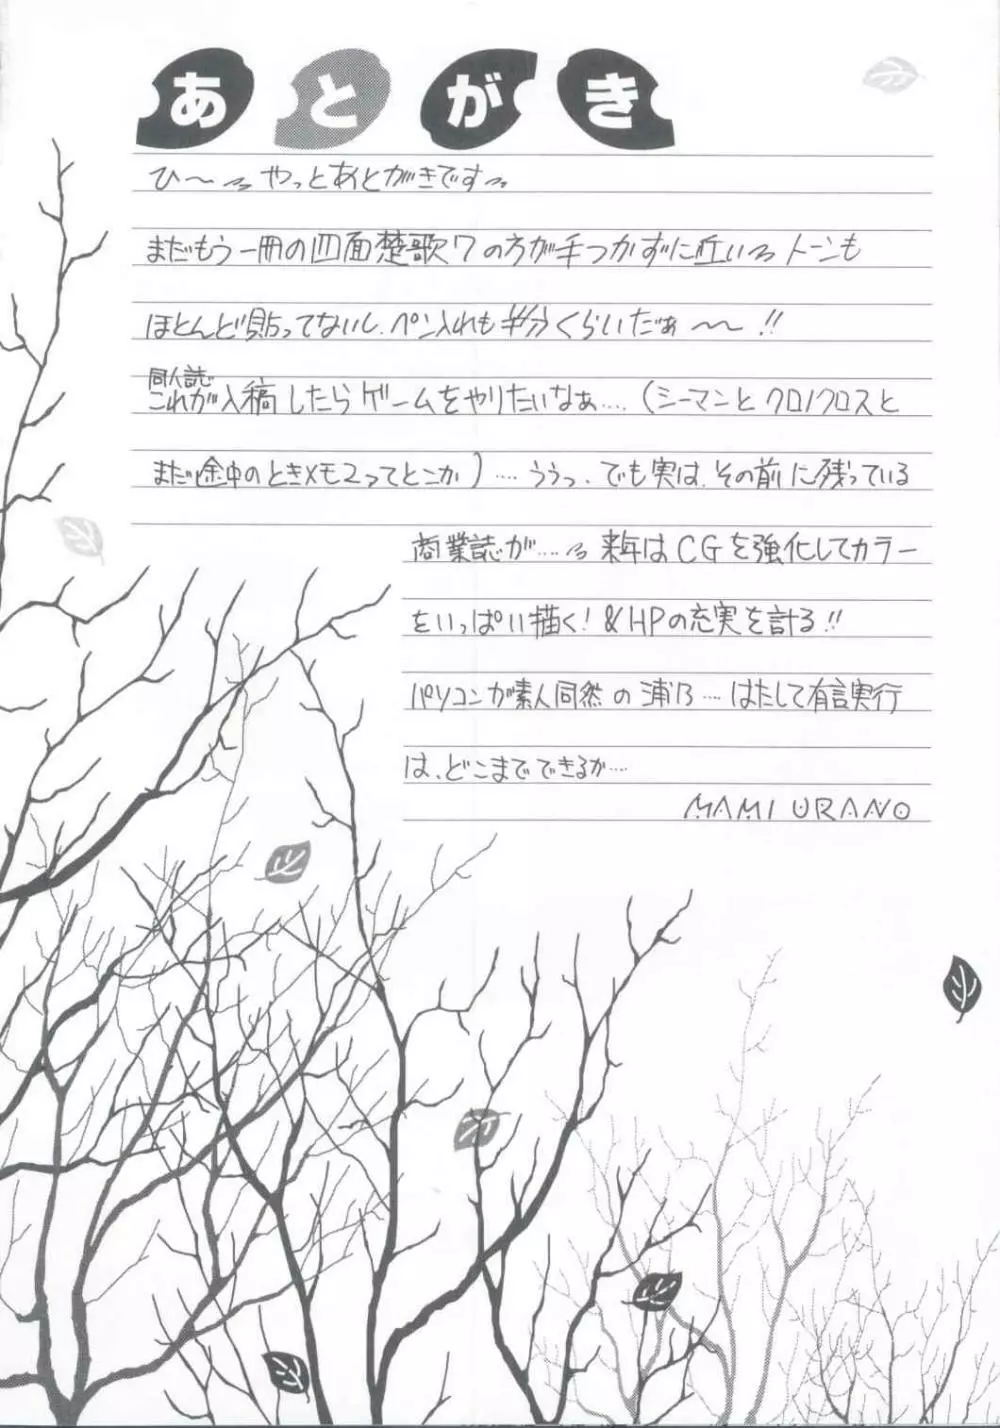 あとがき
ひ〜〜やっとあとがきです〜
まだもう一冊の四面楚歌7の方が手つかずに近い〜トーンも
ほとんど貼ってないし、ペン入れも半分くらいだぁ〜〜!!
同人誌
これが入稿したらゲームをやりたいなぁ‥‥(シーマンとクロノクロスと
まだ途中のときメモ2ってとこか)‥‥ううっ、でも実は、その前に残っている
商業誌が‥‥〜 来年はCGを強化してカラー
をいっぱい描く!&HPの充実を計る!!
パソコンが素人同然の浦乃‥‥はたして有言実行
は、どこまでできるか‥‥
MAMI URANO